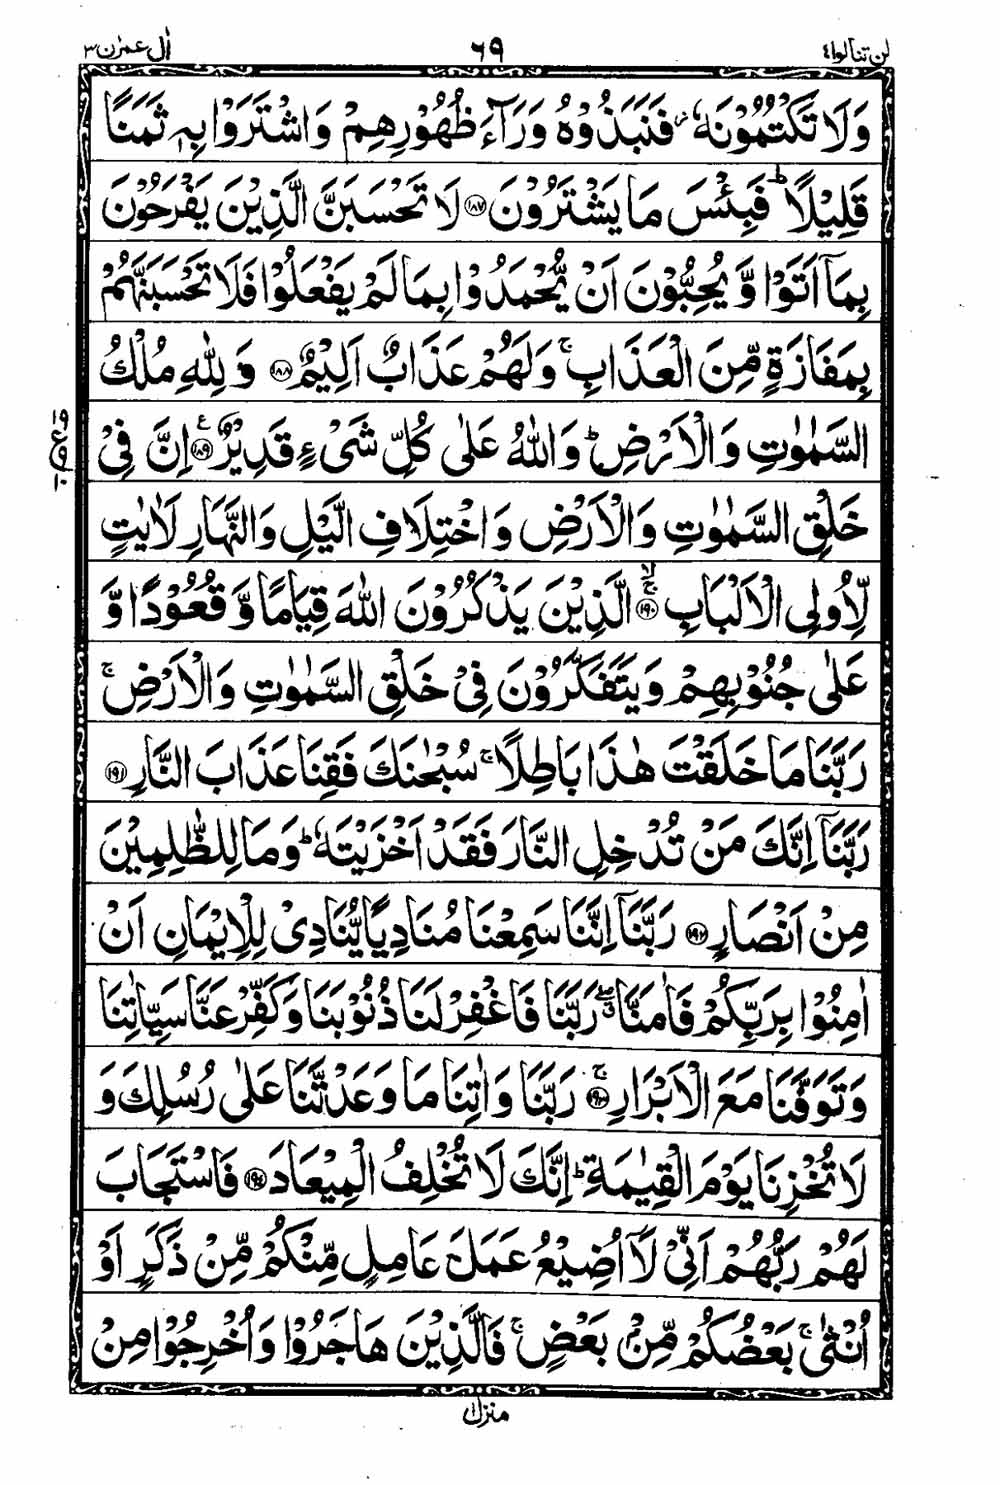 لن تنالوا ٤ ٦٩ اٰل عمرٰن ٣
وَلَا تَكْتُمُوْنَهٗ ز فَنَبَذُوْهُ وَرَآءَ ظُهُوْرِهِمْ وَاشْتَرَوْا بِهٖ ثَمَنًا
قَلِيْلًا ؕ فَبِئْسَ مَا يَشْتَرُوْنَ ۝١٨٧ لَا تَحْسَبَنَّ الَّذِيْنَ يَفْرَحُوْنَ
بِمَاۤ اَتَوْا وَّ يُحِبُّوْنَ اَنْ يُّحْمَدُوْا بِمَا لَمْ يَفْعَلُوْا فَلَا تَحْسَبَنَّهُمْ
بِمَفَازَةٍ مِّنَ الْعَذَابِ ۚ وَلَهُمْ عَذَابٌ اَلِيْمٌ ۝١٨٨ وَلِلّٰهِ مُلْكُ
السَّمٰوٰتِ وَالْاَرْضِ ؕ وَاللّٰهُ عَلٰى كُلِّ شَىْءٍ قَدِيْرٌ ۝١٨٩ ع اِنَّ فِيْ
خَلْقِ السَّمٰوٰتِ وَالْاَرْضِ وَاخْتِلَافِ الَّيْلِ وَالنَّهَارِ لَاٰيٰتٍ
لِّاُولِى الْاَلْبَابِ ۝١٩٠ ۚۙ الَّذِيْنَ يَذْكُرُوْنَ اللّٰهَ قِيَامًا وَّ قُعُوْدًا وَّ
عَلٰى جُنُوْبِهِمْ وَيَتَفَكَّرُوْنَ فِيْ خَلْقِ السَّمٰوٰتِ وَالْاَرْضِ ۚ
رَبَّنَا مَا خَلَقْتَ هٰذَا بَاطِلًا ۚ سُبْحٰنَكَ فَقِنَا عَذَابَ النَّارِ ۝١٩١
رَبَّنَاۤ اِنَّكَ مَنْ تُدْخِلِ النَّارَ فَقَدْ اَخْزَيْتَهٗ ؕ وَمَا لِلظّٰلِمِيْنَ
مِنْ اَنْصَارٍ ۝١٩٢ رَبَّنَاۤ اِنَّنَا سَمِعْنَا مُنَادِيًا يُّنَادِيْ لِلْاِيْمَانِ اَنْ
اٰمِنُوْا بِرَبِّكُمْ فَاٰمَنَّا ۖۗ رَبَّنَا فَاغْفِرْ لَنَا ذُنُوْبَنَا وَكَفِّرْ عَنَّا سَيِّاٰتِنَا
وَتَوَفَّنَا مَعَ الْاَبْرَارِ ۝١٩٣ ۚ رَبَّنَا وَاٰتِنَا مَا وَعَدْتَّنَا عَلٰى رُسُلِكَ وَ
لَا تُخْزِنَا يَوْمَ الْقِيٰمَةِ ؕ اِنَّكَ لَا تُخْلِفُ الْمِيْعَادَ ۝١٩٤ فَاسْتَجَابَ
لَهُمْ رَبُّهُمْ اَنِّيْ لَاۤ اُضِيْعُ عَمَلَ عَامِلٍ مِّنْكُمْ مِّنْ ذَكَرٍ اَوْ
اُنْثٰى ۚ بَعْضُكُمْ مِّنْۢ بَعْضٍ ۚ فَالَّذِيْنَ هَاجَرُوْا وَاُخْرِجُوْا مِنْ
منزل